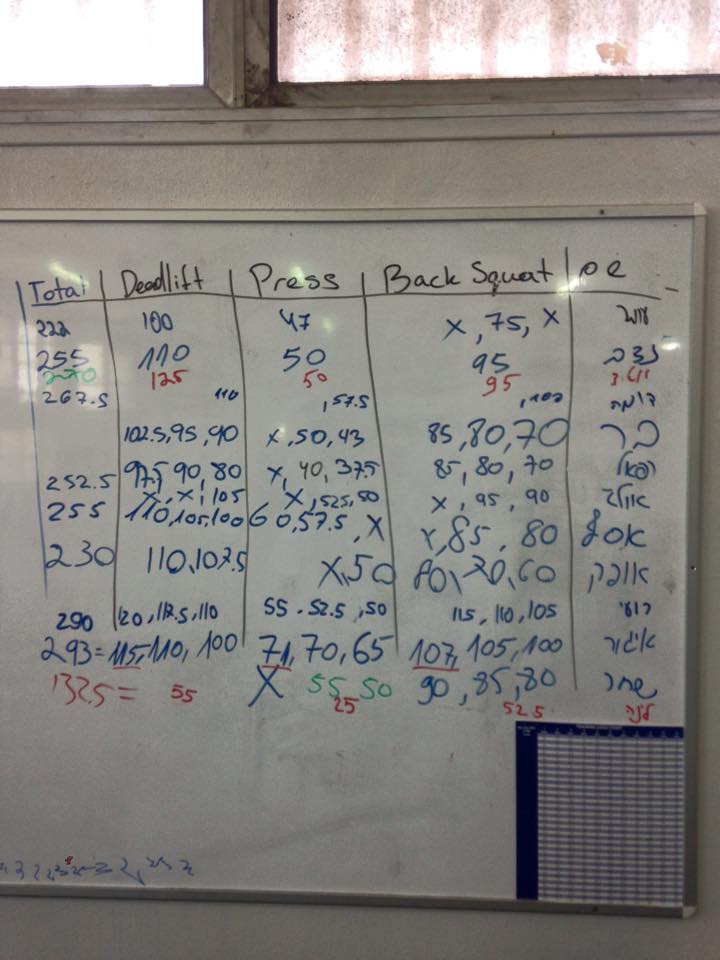 Total Deadlift Press Back Squat שם
222 100 47 X, 75, X
255 110 50 95
270 125 50 95
267.5 110 , 57.5 , 102.5 דומה
102.5, 95, 90 X, 50, 43 85, 80, 70 בר
252.5 97.5 90, 80 X, 40, 37.5 85, 80, 70 רפאל
X, X, 105 X, 52.5, 50 X, 95, 90
255 110, 105, 100 60, 57.5, X X, 85, 80 אסף
230 110, 107.5 X, 50 80, 70, 60
290 120, 112.5, 110 55. 52.5, 50 115, 110, 105 רועי
293 = 115, 110, 100 71, 70, 65 107, 105, 100 איגור
X 55, 50 90, 85, 80 שחר
132.5 = 55 25 52.5 לנה